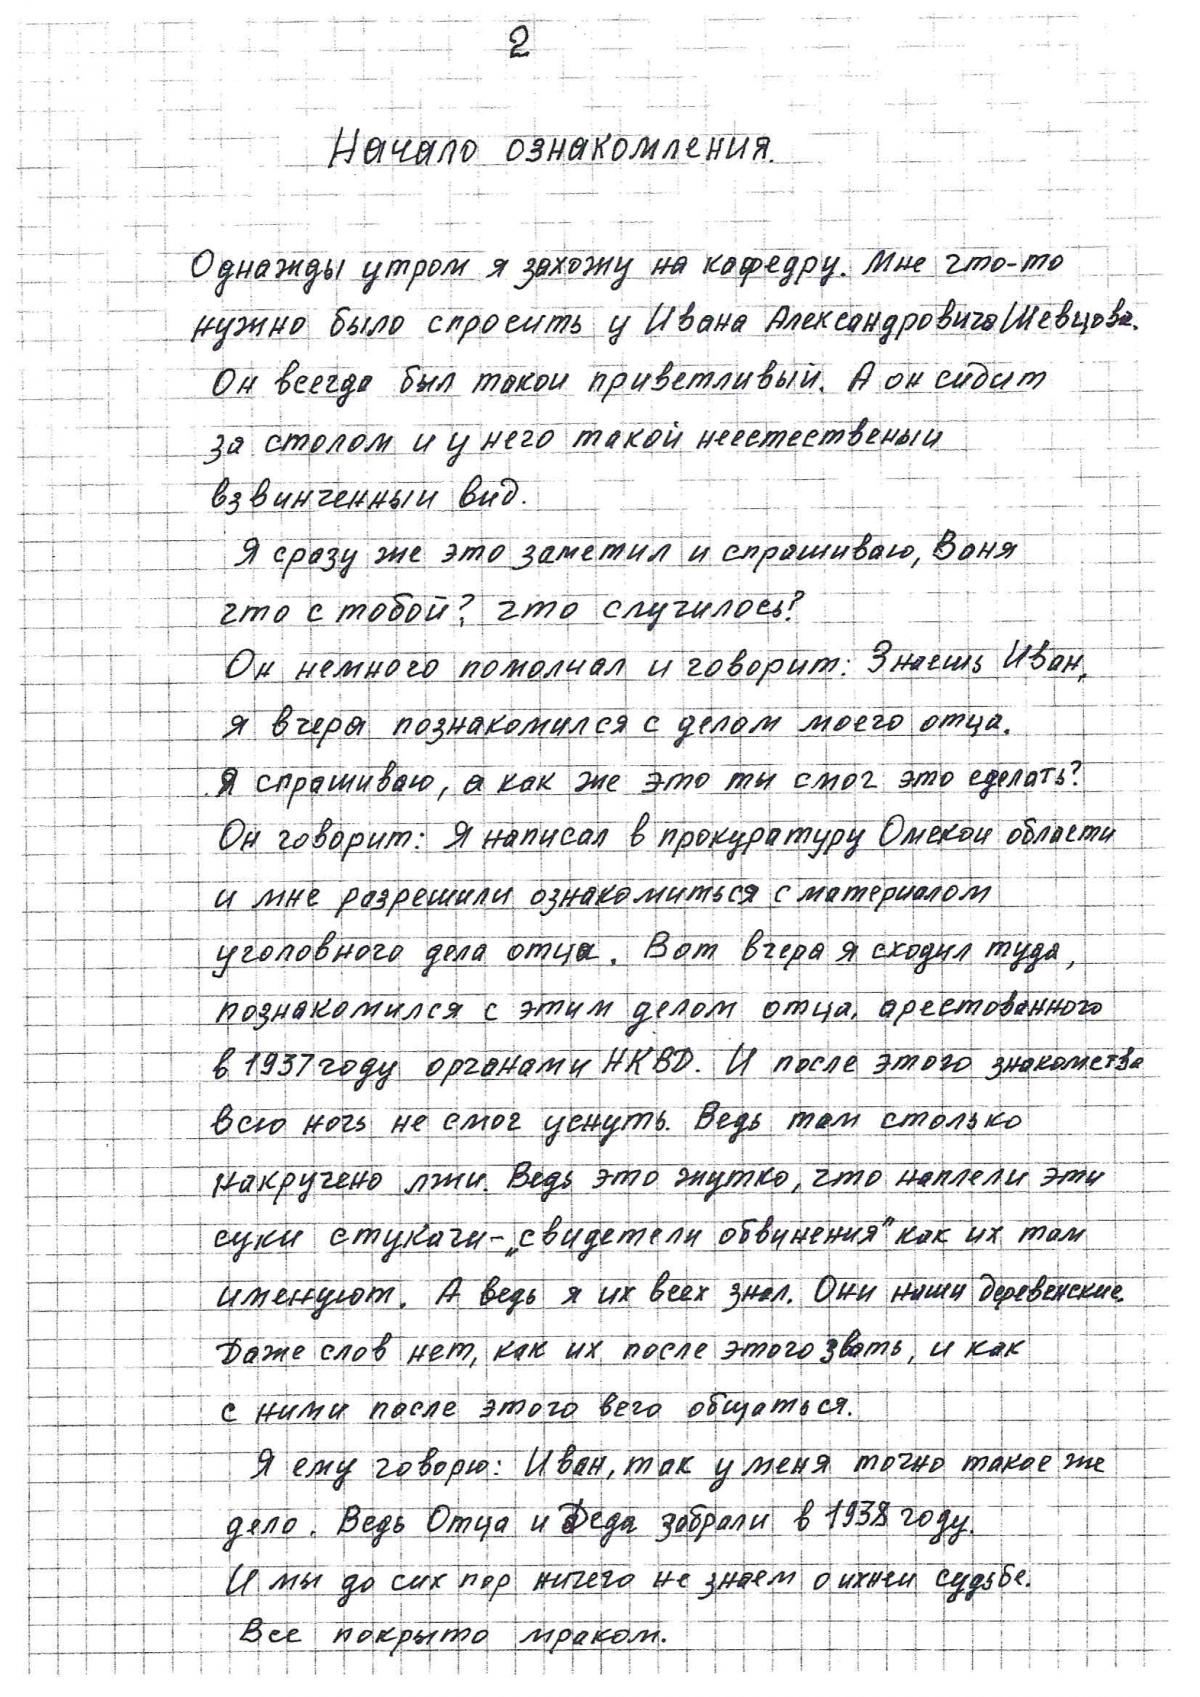 2
Начало ознакомления.
Однажды утром я захожу на кафедру. Мне что-то
нужно было спросить у Ивана Александровича Шевцова.
Он всегда был такои приветливый. А он сидит
за столом и у него такой неестественыи
взвинченныи вид.
Я сразу же это заметил и спрашиваю, Ваня
что с тобой? что случилось?
Он немного помолчал и говорит: Знаешь Иван,
я вчера познакомился с делом моего отца.
Я спрашиваю, а как же это ты смог это сделать?
Он говорит: Я написал в прокуратуру Омскои области
и мне разрешили ознакомиться с материалом
уголовного дела отца. Вот вчера я сходил туда,
познакомился с этим делом отца, арестованного
в 1937 году органами НКВД. И после этого знакомства
всю ночь не смог уснуть. Ведь там столько
накручено лжи. Ведь это жутко, что наплели эти
суки стукачи-„свидетели обвинения" как их там
именуют. А ведь я их всех знал. Они наши деревенские.
Даже слов нет, как их после этого звать, и как
с ними после этого всго общаться.
Я ему говорю: Иван, так у меня точно такое же
дело. Ведь Отца и Деда забрали в 1938 году.
И мы до сих пор ничего не знаем о ихнеи судьбе.
Все покрыто мраком.